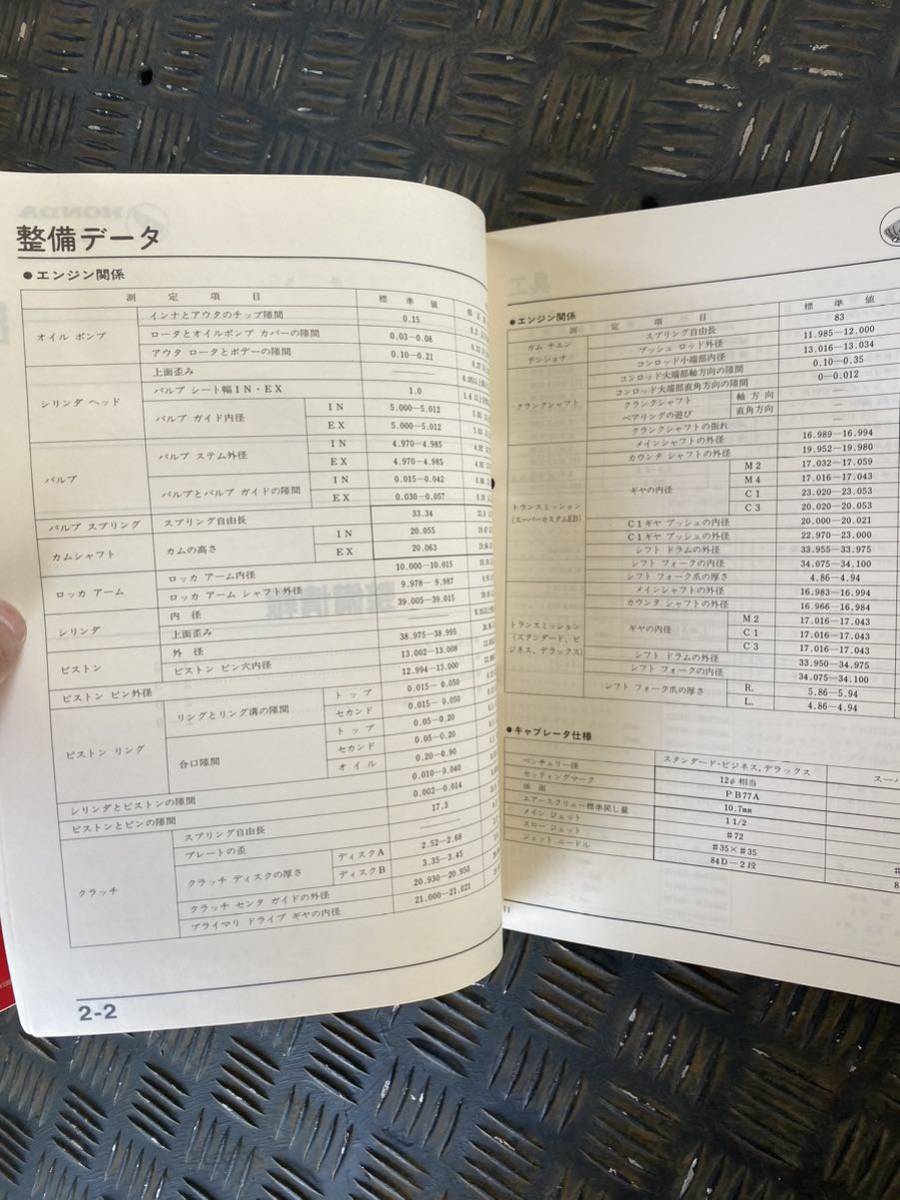 整備データ
●エンジン関係
測定項目 標準値
オイル ポンプ インナとアウタのチップ隙間 0.15
ロータとオイルポンプ カバーの隙間 0.03—0.08
アウタ ロータとボデーの隙間 0.10—0.21
シリンダ ヘッド 上面歪み
バルブ シート幅IN・EX 1.0
バルブ ガイド内径 IN 5.000—5.012
EX 5.000—5.012
バルブ バルブ ステム外径 IN 4.970—4.985
EX 4.970—4.985
バルブとバルブ ガイドの隙間 IN 0.015—0.042
EX 0.030—0.057
バルブ スプリング スプリング自由長 33.34
カムシャフト カムの高さ IN 20.055
EX 20.063
ロッカ アーム ロッカ アーム内径 10.000—10.015
ロッカ アーム シャフト外径 9.978—9.987
シリンダ 内径 39.005—39.015
上面歪み
ピストン 外径 38.975—38.995
ピストン ピン穴内径 13.002—13.008
ピストン ピン外径 12.994—13.000
ピストン リング リングとリング溝の隙間 トップ 0.015—0.050
セカンド 0.015—0.050
合口隙間 トップ 0.05—0.20
セカンド 0.05—0.20
オイル 0.20—0.90
シリンダとピストンの隙間 0.010—0.040
ピストンとピンの隙間 0.002—0.014
クラッチ スプリング自由長 17.3
プレートの歪
クラッチ ディスクの厚さ ディスクA 2.52—2.68
ディスクB 3.35—3.45
クラッチ センタ ガイドの外径 20.930—20.950
プライマリ ドライブ ギヤの内径 21.000—21.021
2-2
●エンジン関係
測定項目 標準値
カム チエン テンショナ スプリング自由長 83
プッシュ ロッド外径 11.985—12.000
クランクシャフト コンロッド小端部内径 13.016—13.034
コンロッド大端部軸方向の隙間 0.10—0.35
コンロッド大端部直角方向の隙間 0—0.012
クランクシャフト ベアリングの遊び 軸方向 —
直角方向 —
クランクシャフトの振れ
トランスミッション (スーパーカスタムED) メインシャフトの外径 16.989—16.994
カウンタ シャフトの外径 19.952—19.980
ギヤの内径 M2 17.032—17.059
M4 17.016—17.043
C1 23.020—23.053
C3 20.020—20.053
C1ギヤ ブッシュの内径 20.000—20.021
C1ギヤ ブッシュの外径 22.970—23.000
シフト ドラムの外径 33.955—33.975
シフト フォークの内径 34.075—34.100
シフト フォーク爪の厚さ 4.86—4.94
トランスミッション (スタンダード、ビジネス、デラックス) メインシャフトの外径 16.983—16.994
カウンタ シャフトの外径 16.966—16.984
ギヤの内径 M2 17.016—17.043
C1 17.016—17.043
C3 17.016—17.043
シフト ドラムの外径 33.950—34.975
シフト フォークの内径 34.075—34.100
シフト フォーク爪の厚さ R. 5.86—5.94
L. 4.86—4.94
●キャブレータ仕様
スタンダード・ビジネス,デラックス スーパ
ベンチュリー径 12φ相当
セッティングマーク PB77A
油面 10.7mm
エアースクリュー標準戻し量 1 1/2
メイン ジェット #72
スロー ジェット #35×#35
ジェット ニードル 84D−2段